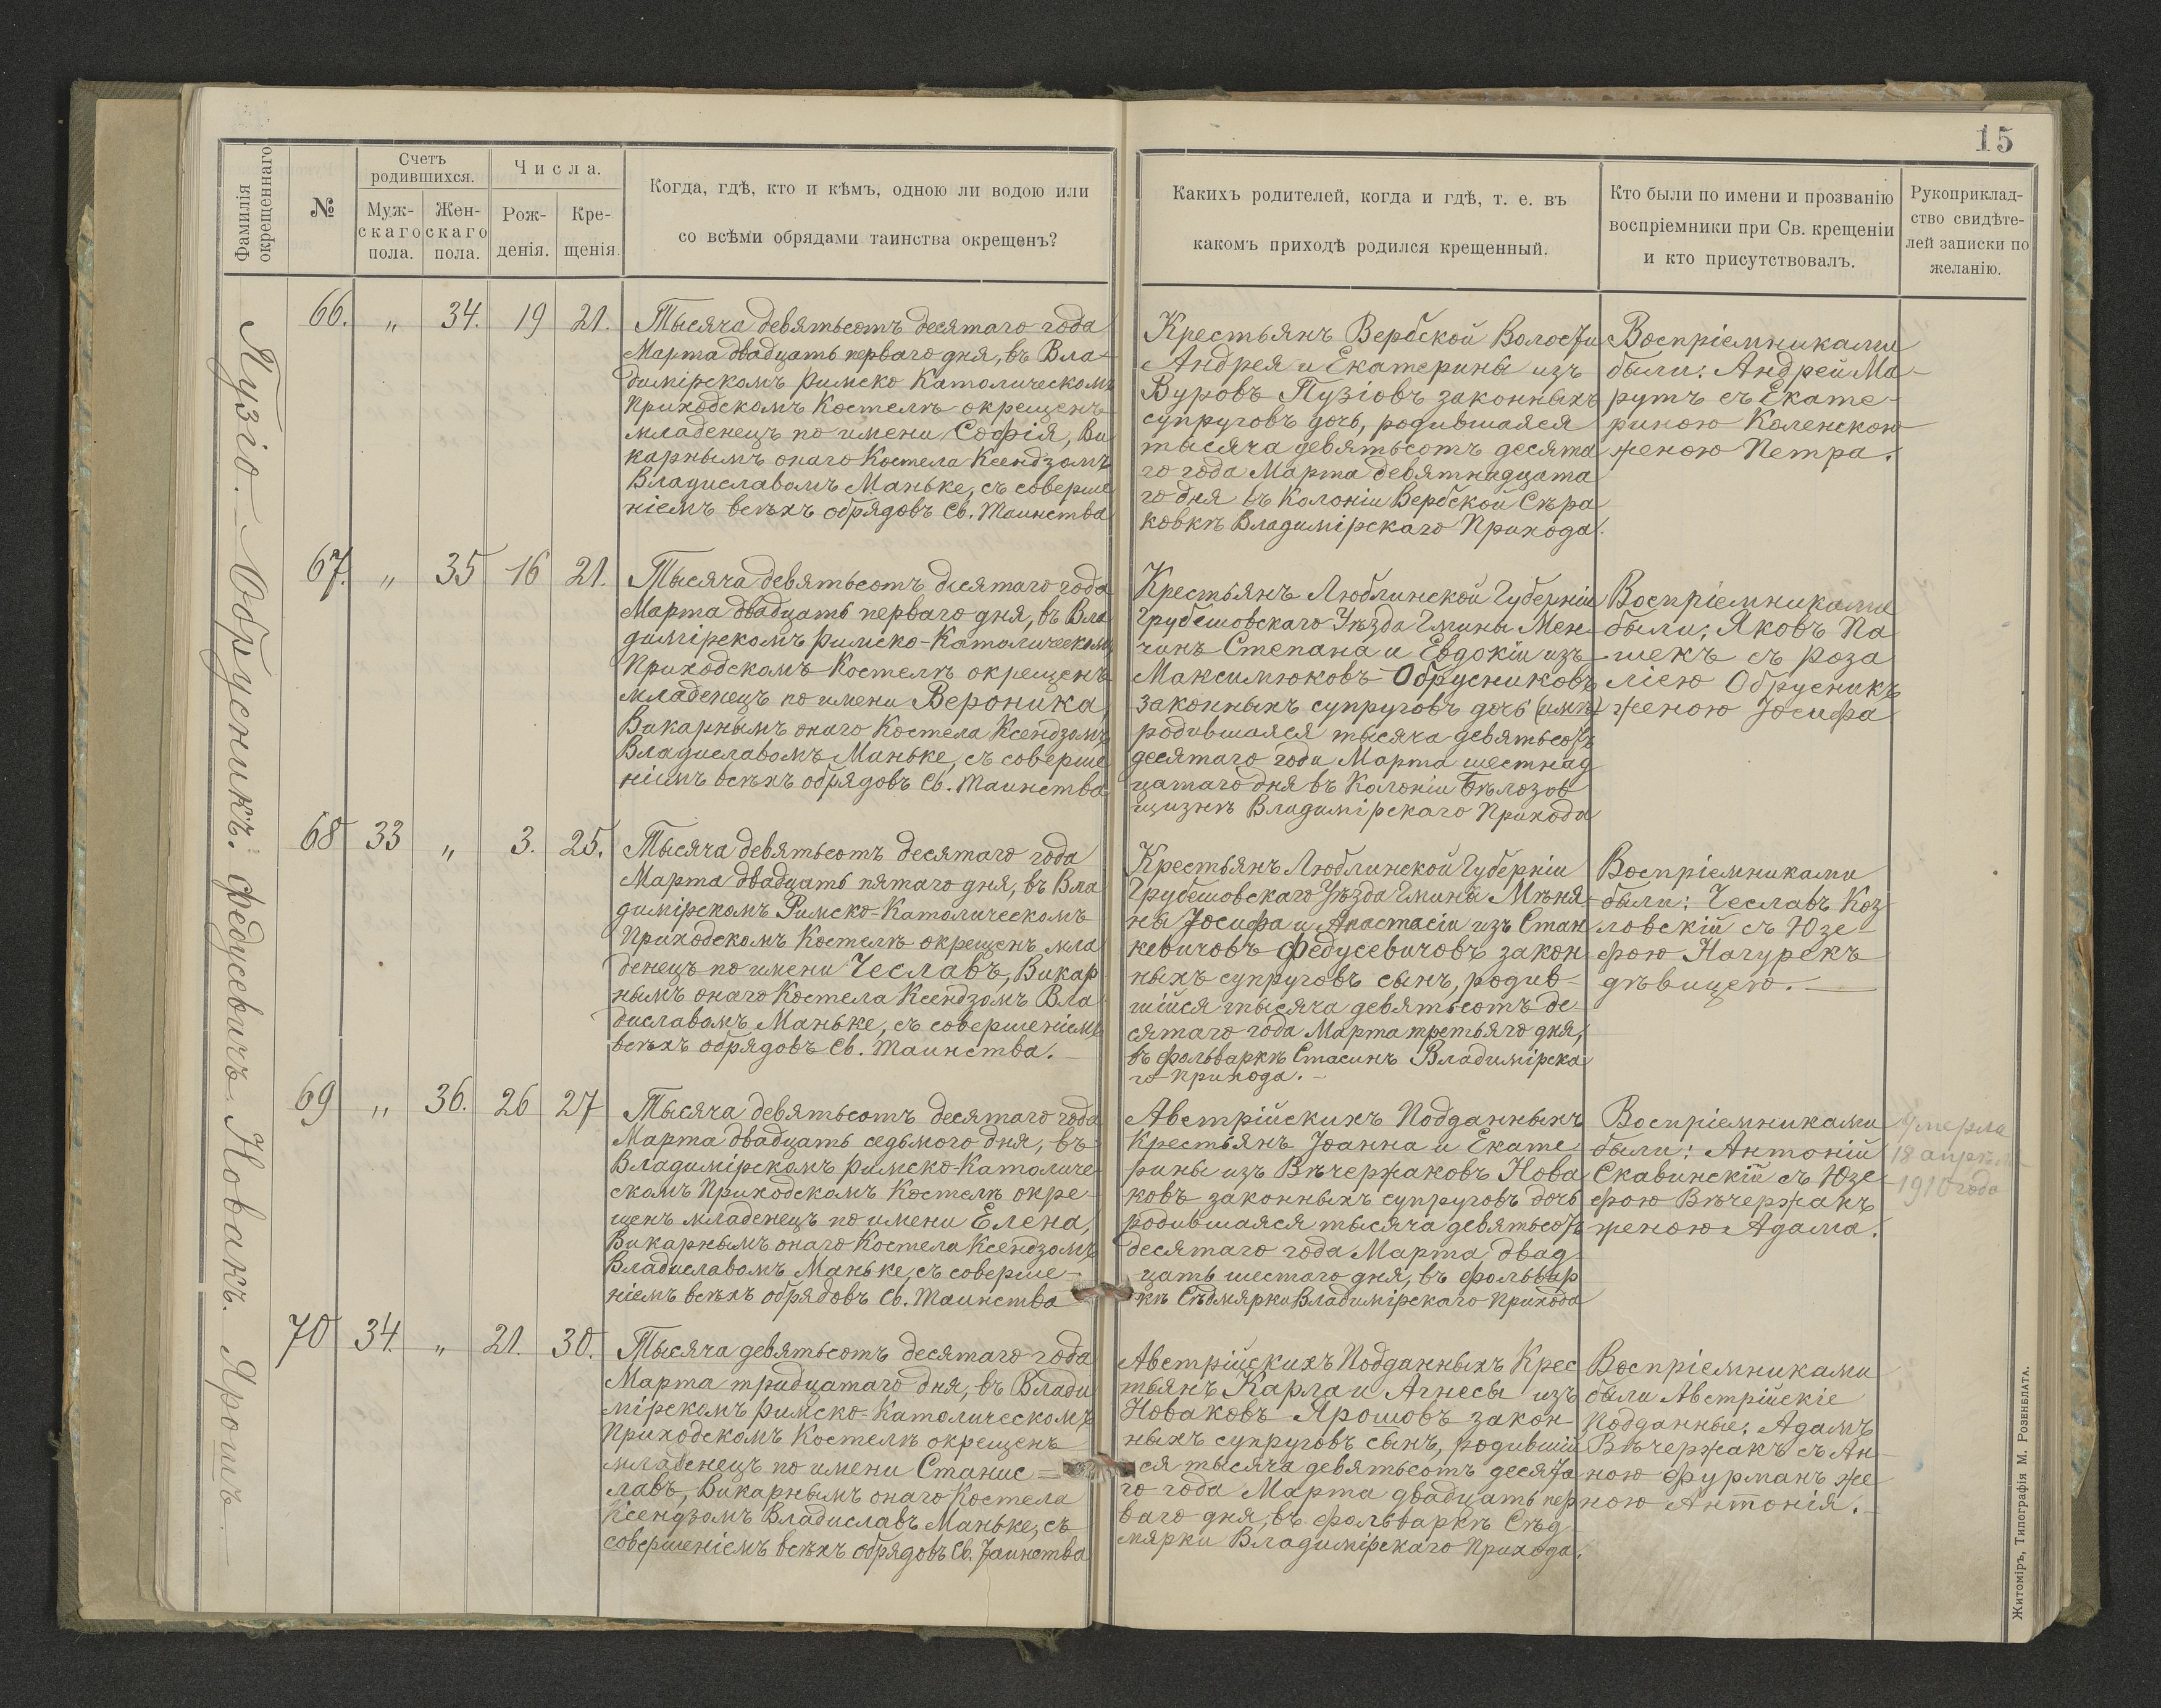 15
Фамилія
окрещеннаго
№
Счетъ
родившихся.
Муж-
скаго
пола.
Жен-
скаго
пола.
Числа.
Рож-
денія.
Кре-
щенія.
Когда, гдѣ, кто и кѣмъ, одною ли водою или
со всѣми обрядами таинства окрещенъ?
Какихъ родителей, когда и гдѣ, т. е. въ
какомъ приходѣ родился крещенный.
Кто были по имени и прозванію
воспріемники при Св. крещеніи
и кто присутствовалъ.
Рукоприклад-
ство свидѣте-
лей записки по
желанію.
Пузіо. Обрусникъ. Федусевичъ. Новакъ. Ярошъ
66. „ 34. 19 21.
Тысяча девятьсотъ десятаго года
Марта двадцать перваго дня, въ Вла-
димірскомъ Римско Католическомъ
Приходскомъ Костелѣ окрещенъ
младенецъ по имени Софія, Ви
карнымъ онаго Костела Ксендзомъ
Владиславомъ Маньке, съ соверше
ніемъ всѣхъ обрядовъ Св. Таинства
Крестьянъ Вербской Волости
Андрея и Екатерины изъ
Буровъ Пузіовъ законныхъ
супруговъ дочь, родившаяся
тысяча девятьсотъ десята
го года Марта девятнадцата
го дня въ Колоніи Вербской Сѣра
ковкѣ Владимірскаго Прихода.
Воспріемниками
были: Андрей Ма-
рутъ съ Екате-
риною Каленскою
женою Петра.
67. „ 35 16 21.
Тысяча девятьсотъ десятаго года
Марта двадцать перваго дня, въ Вла
димірскомъ Римско-Католическомъ
Приходскомъ Костелѣ окрещенъ
младенецъ по имени Вероника
Викарнымъ онаго Костела Ксендзомъ
Владиславомъ Маньке, съ соверше
ніемъ всѣхъ обрядовъ Св. Таинства
Крестьянъ Люблинской Губерніи
Грубешовскаго Уѣзда Гмины Мен-
чинъ Степана и Евдокіи изъ
Максимюковъ Обрусниковъ
законныхъ супруговъ дочь
родившаяся тысяча девятьсотъ
десятаго года Марта шестнад
цатаго дня въ Колоніи Бѣлозов
щизнѣ Владимірскаго Прихода
Воспріемниками
были: Яковъ Па
шекъ съ роза
ліею Обрусникъ
женою Іосифа
68 33 „ 3. 25.
Тысяча девятьсотъ десятаго года
Марта двадцать пятаго дня, въ Вла
димірскомъ Римско-Католическомъ
Приходскомъ Костелѣ окрещенъ мла
денецъ по имени Чеславъ, Викар
нымъ онаго Костела Ксендзомъ Вла
диславомъ Маньке, съ совершеніемъ
всѣхъ обрядовъ Св. Таинства.
Крестьянъ Люблинской Губерніи
Грубешовскаго Уѣзда Гмины Мѣня-
ны Іосифа и Анастасіи изъ Стан
кевичовъ Федусевичовъ закон
ныхъ супруговъ сынъ, родив-
шійся тысяча девятьсотъ де-
сятаго года Марта третьяго дня,
въ фольваркѣ Стасинъ Владимірска
го Прихода.
Воспріемниками
были: Чеславъ Коз
ловскій съ Юзе
фою Нагурекъ
дѣвицею.
69 „ 36. 26 27
Тысяча девятьсотъ десятаго года
Марта двадцать седьмого дня, въ
Владимірскомъ Римско-Католиче-
скомъ Приходскомъ Костелѣ окре-
щенъ младенецъ по имени Елена,
Викарнымъ онаго Костела Ксендзомъ
Владиславомъ Маньке, съ соверше-
ніемъ всѣхъ обрядовъ Св. Таинства
Австрійскихъ Подданныхъ
Крестьянъ Іоанна и Екате
рины изъ Вѣчержаковъ Нова
ковъ законныхъ супруговъ дочь
родившаяся тысяча девятьсотъ
десятаго года Марта двад
цать шестаго дня, въ фольвар
кѣ Сѣдмярки Владимірскаго Прихода
Воспріемниками
были: Антоній
Скавинскій съ Юзе
фою Вѣчержакъ
женою Адама.
Умерла
18 апрѣля
1910 года
70 34. „ 21. 30.
Тысяча девятьсотъ десятаго года
Марта тридцатаго дня, въ Влади
мірскомъ Римско-Католическомъ
Приходскомъ Костелѣ окрещенъ
младенецъ по имени Станис=
лавъ, Викарнымъ онаго Костела
Ксендзомъ Владиславъ Маньке, съ
совершеніемъ всѣхъ обрядовъ Св. Таинства
Австрійскихъ Подданныхъ Крес
тьянъ Карла и Агнесы изъ
Новаковъ Ярошовъ закон
ныхъ супруговъ сынъ, родившій
ся тысяча девятьсотъ десята
го года Марта двадцать пер
ваго дня, въ фольваркѣ Сѣд
мярки Владимірскаго Прихода.
Воспріемниками
были Австрійскіе
Подданные: Адамъ
Вѣчержакъ съ Ан-
ною Фурманъ же
ною Антонія.
Житоміръ, Типографія М. Розенблата.